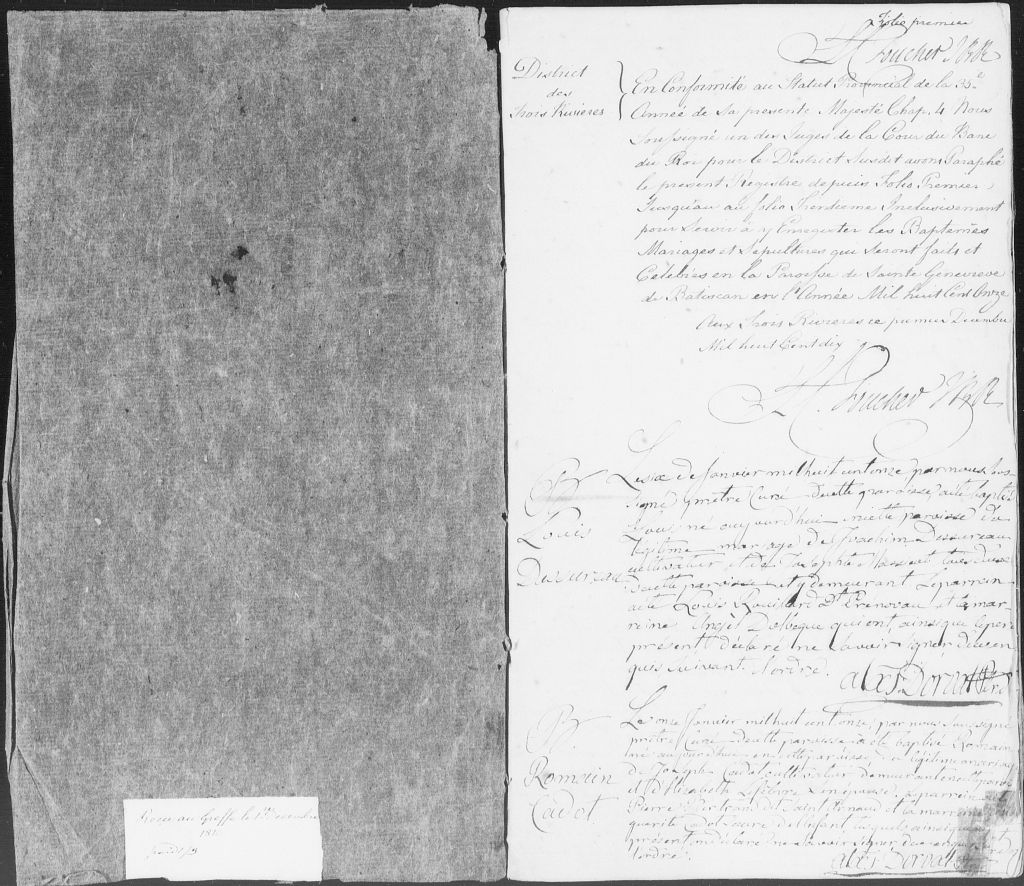 folio premier
L C Foucher JBR
District
des
trois Rivieres
En Conformité au Statut Provincial de la 35e
Année de Sa presente Majesté Chap. 4 Nous
Soussigné un des Juges de la Cour du Banc
du Roi pour le District Susdit avons Paraphé
le present Registre depuis Folio Premier
Jusqu'au au folio Inclusivement
pour Servir à y Enregistrer les Baptemes
Mariages et Sepultures qui Seront faits et
Célébrés en la Paroisse de Sainte Genevieve
de Batiscan en l'Année Mil huit Cent Onze
Aux trois Rivieres ce premier Decembre
Mil huit Cent dix
L C Foucher JBR
B
Louis
Dusureau
Le six de Janvier mil huit cent onze par nous sous
signé prêtre Curé de cette paroisse a été baptisé
Louis né aujourd'hui en cette paroisse du
légitime mariage de Joachim Dessureau
cultivateur et de Josephte Massicot tous deux
de cette paroisse et y demeurant Le parrain
a été Louis Rouillard dt Prénovau et la mar
reine qui ont ainsi que le pere
présent déclaré ne savoir signer de ce en
quis suivant l'ordre.
Alexs. Dorval Ptre
B.
Romain
Cadot
Le onze Janvier mil huit cent onze par nous soussigné
prêtre Curé de cette paroisse a été baptisé Romain
né aujourd'hui en cette paroisse du légitime mariage
de Joseph Cadot cultivateur demeurant en cette paroisse
et d'Elizabeth Lefebvre son épouse. Le parrain a été
Pierre Bertrand dit Saint Arnaud et la marraine
querite Cadot soeur de l'enfant lesquels ainsi que
présent ont déclaré ne savoir signer de ce enquis
l'ordre.
Alexs. Dorval
Reçu au Greffe le Decembre
181